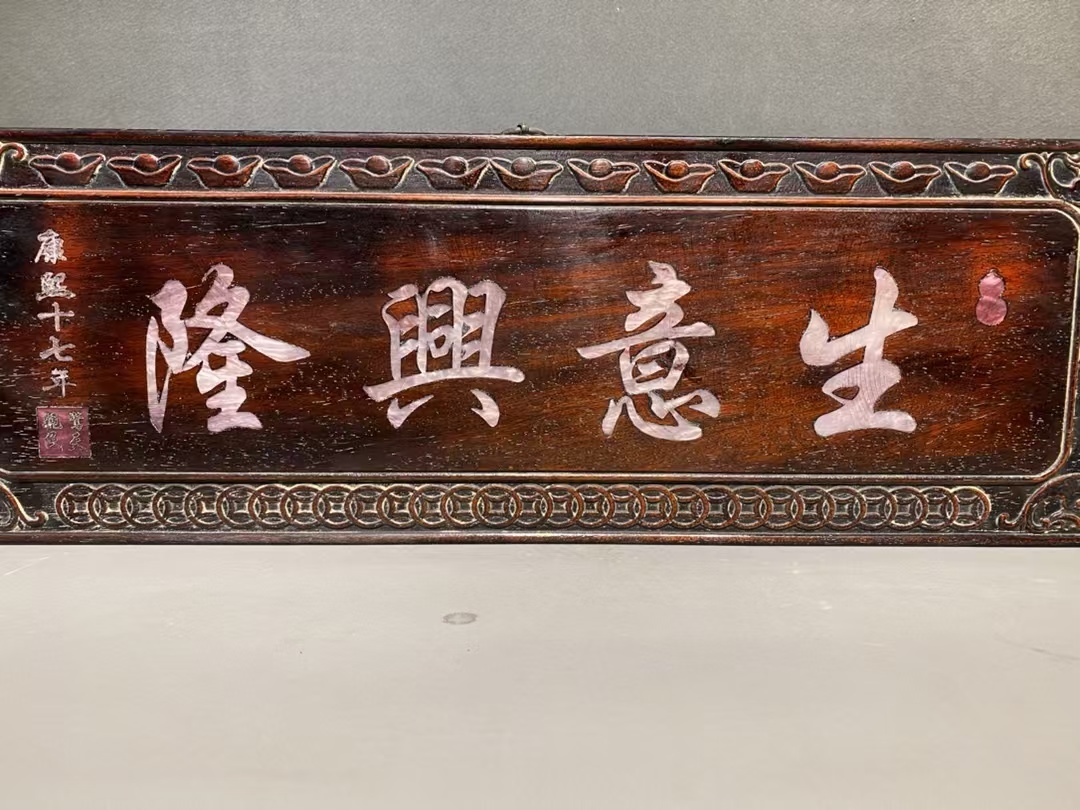 生意興隆
康熙十七年